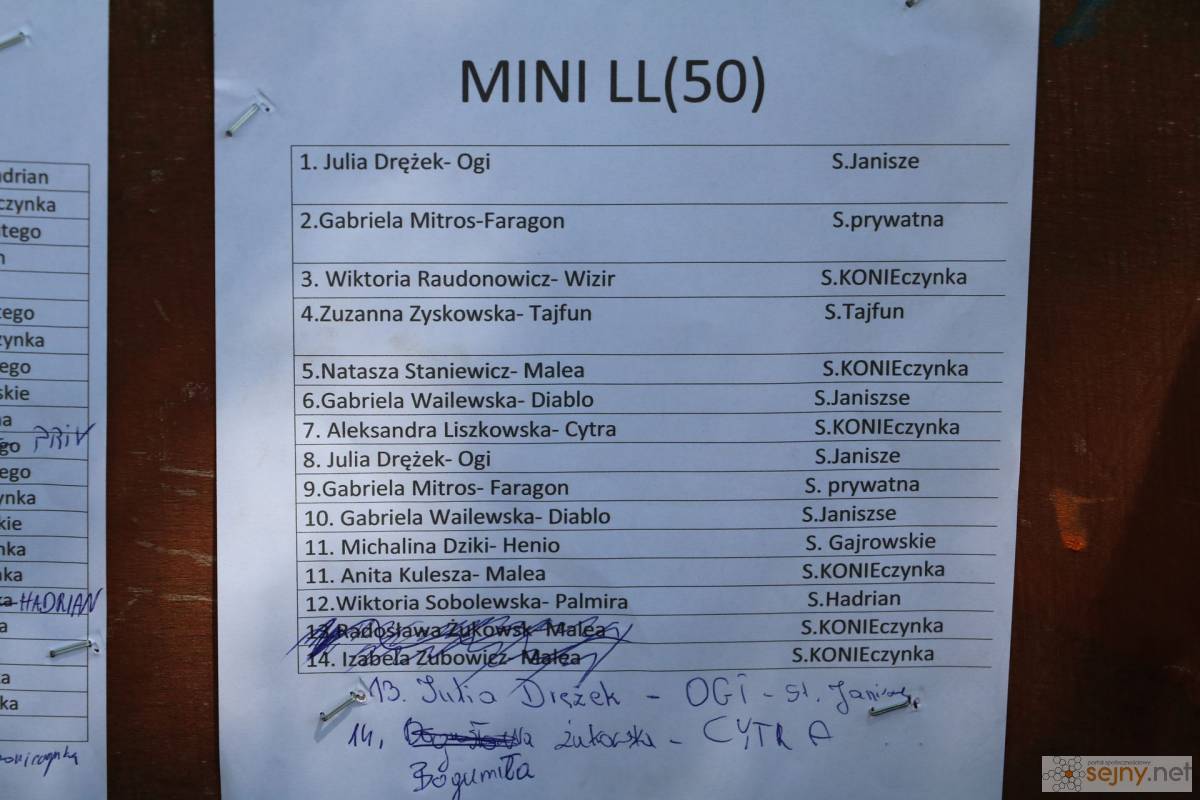 MINI LL(50)
1. Julia Drężek- Ogi S.Janisze
2.Gabriela Mitros-Faragon S.prywatna
3. Wiktoria Raudonowicz- Wizir S.KONIEczynka
4.Zuzanna Zyskowska- Tajfun S.Tajfun
5.Natasza Staniewicz- Malea S.KONIEczynka
6.Gabriela Wailewska- Diablo S.Janiszse
7. Aleksandra Liszkowska- Cytra S.KONIEczynka
8. Julia Drężek- Ogi S.Janisze
9.Gabriela Mitros- Faragon S. prywatna
10. Gabriela Wailewska- Diablo S.Janiszse
11. Michalina Dziki- Henio S. Gajrowskie
11. Anita Kulesza- Malea S.KONIEczynka
12.Wiktoria Sobolewska- Palmira S.Hadrian
13.Radosława Żukowsk- Malea S.KONIEczynka
14. Izabela Zubowicz- Malea S.KONIEczynka
13. Julia Drężek - OGI - st. Janisze
14. żukowska - CYTRA
Bogumiła
adrian
czynka
tego
tego
zynka
ego
skie
na
go PRIV
ego
ynka
kie
nka
nka
HADRIAN
ka
portal społecznościowy
sejny.net